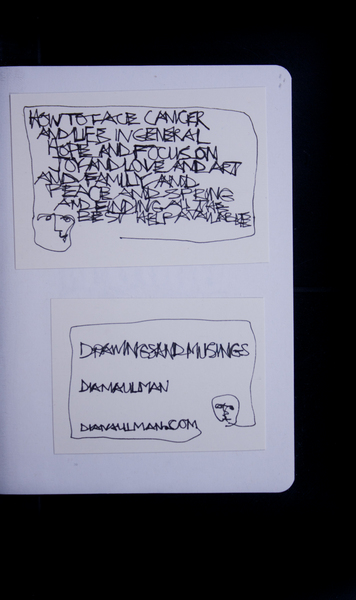 HOW TO FACE CANCER
AND LIFE IN GENERAL
HOPE AND FOCUS ON
JOY AND LOVE AND ART
AND FAMILY AND
PEACE AND SPRING
AND FINDING ALL THE
BEST HELP AVAILABLE
DRAWINGS AND MUSINGS
DIANAULMAN
DIANAULMAN.COM